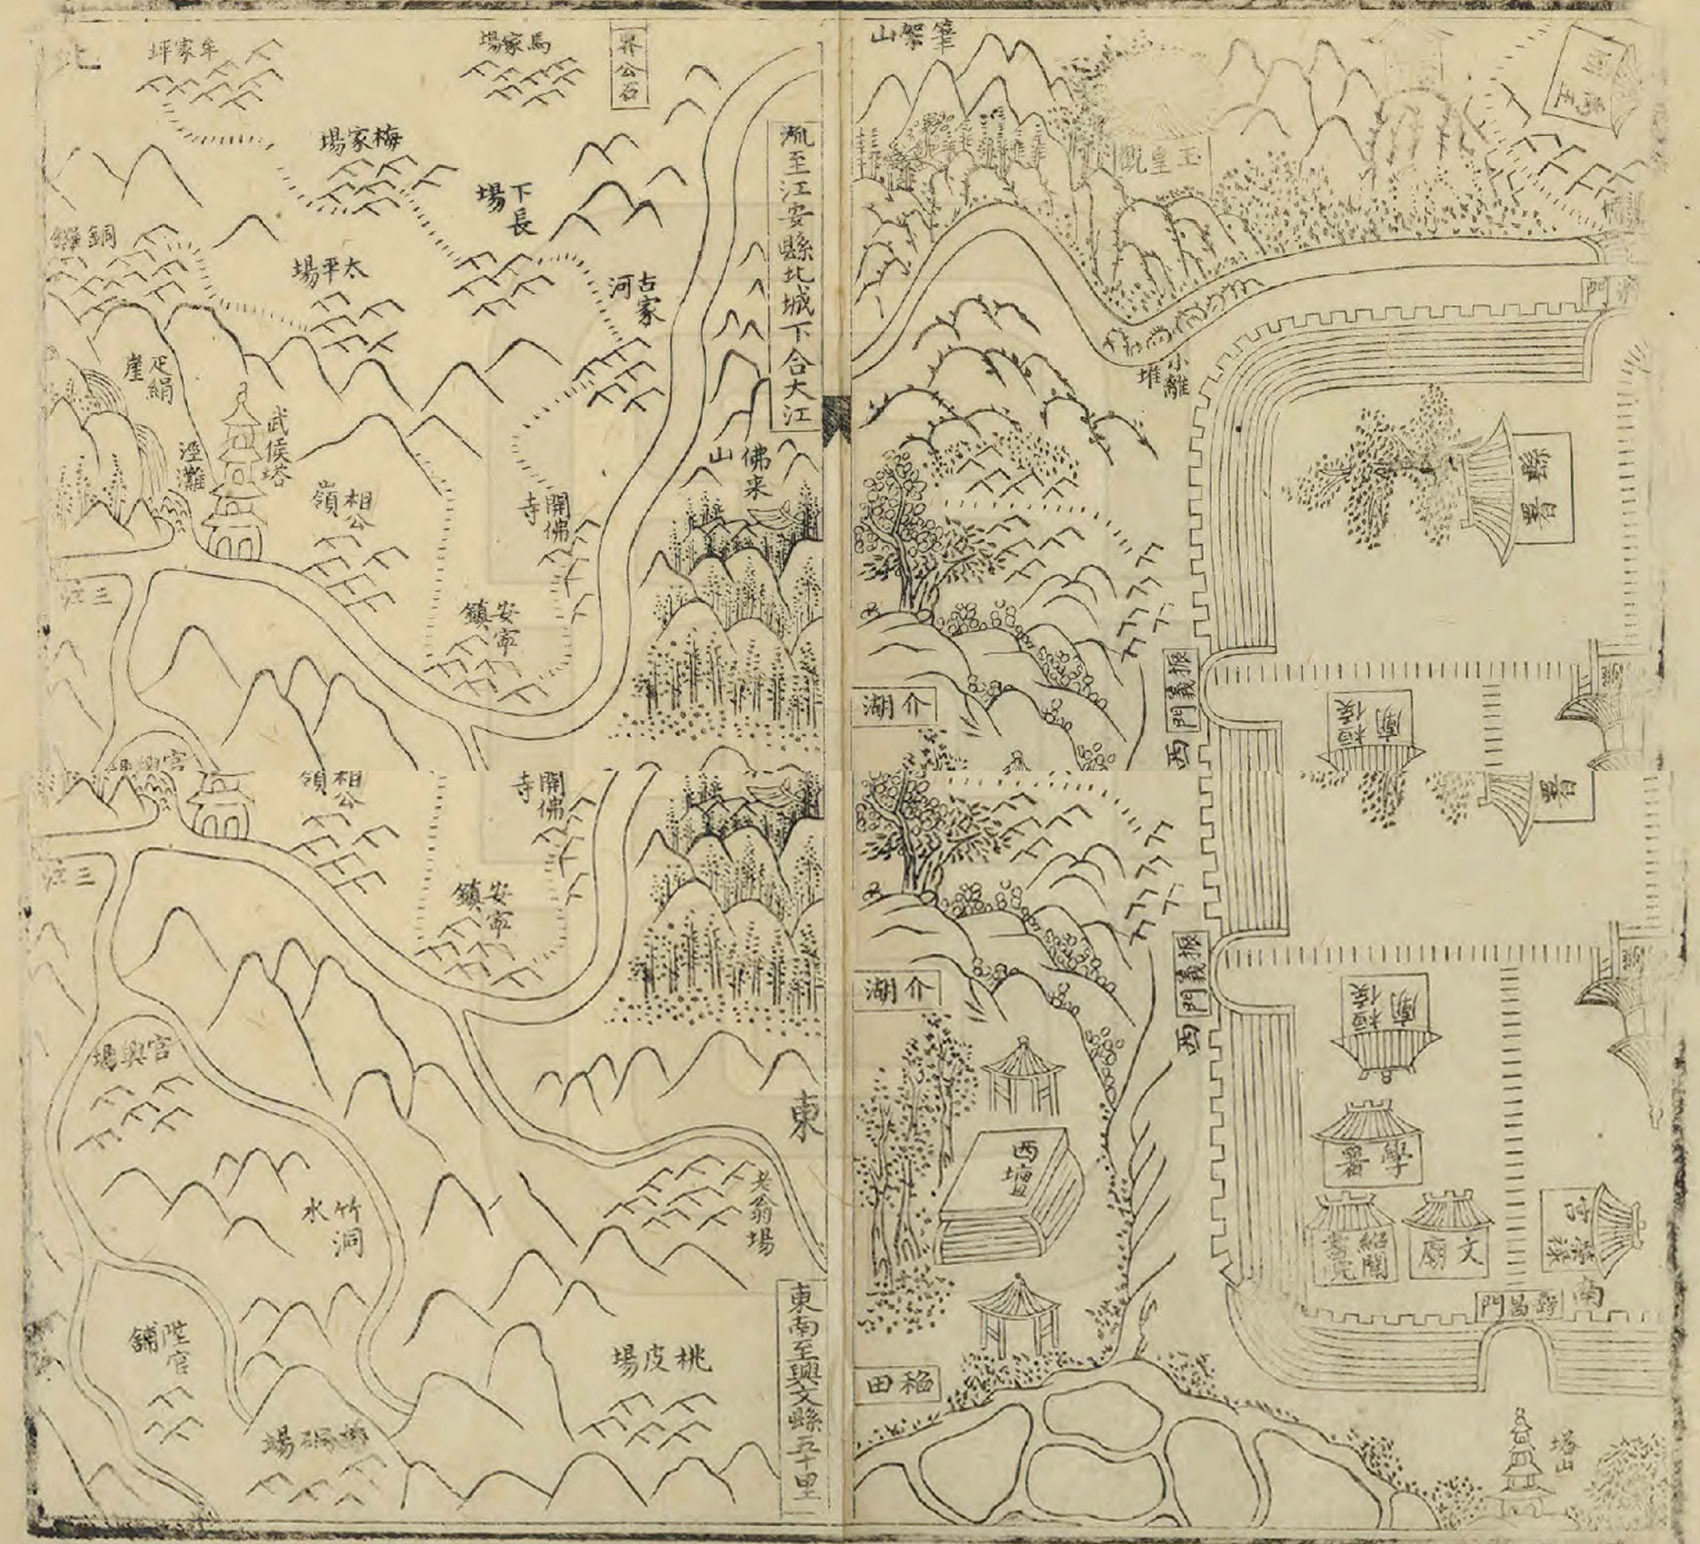 北
牟家坪
馬家場
界公石
梅家場
下長場
銅鑼
太平場
古家河
流至江安縣北城下合大江
疋絹崖
武侯塔
涇灘
相公嶺
開佛寺
佛来山
安寧鎮
三江
官興場
相公嶺
開佛寺
安寧鎮
三江
官興場
東
老翁場
竹洞水
陞官舖
桃皮場
桐梓場
東南至興文縣五十里
筆架山
玉皇觀
門
小離堆
縣署
介湖
振義門
西
桓侯廟
署
介湖
振義門
西
桓侯廟
學署
西壇
紹聞書院
文廟
南
壽昌門
稻田
塔山